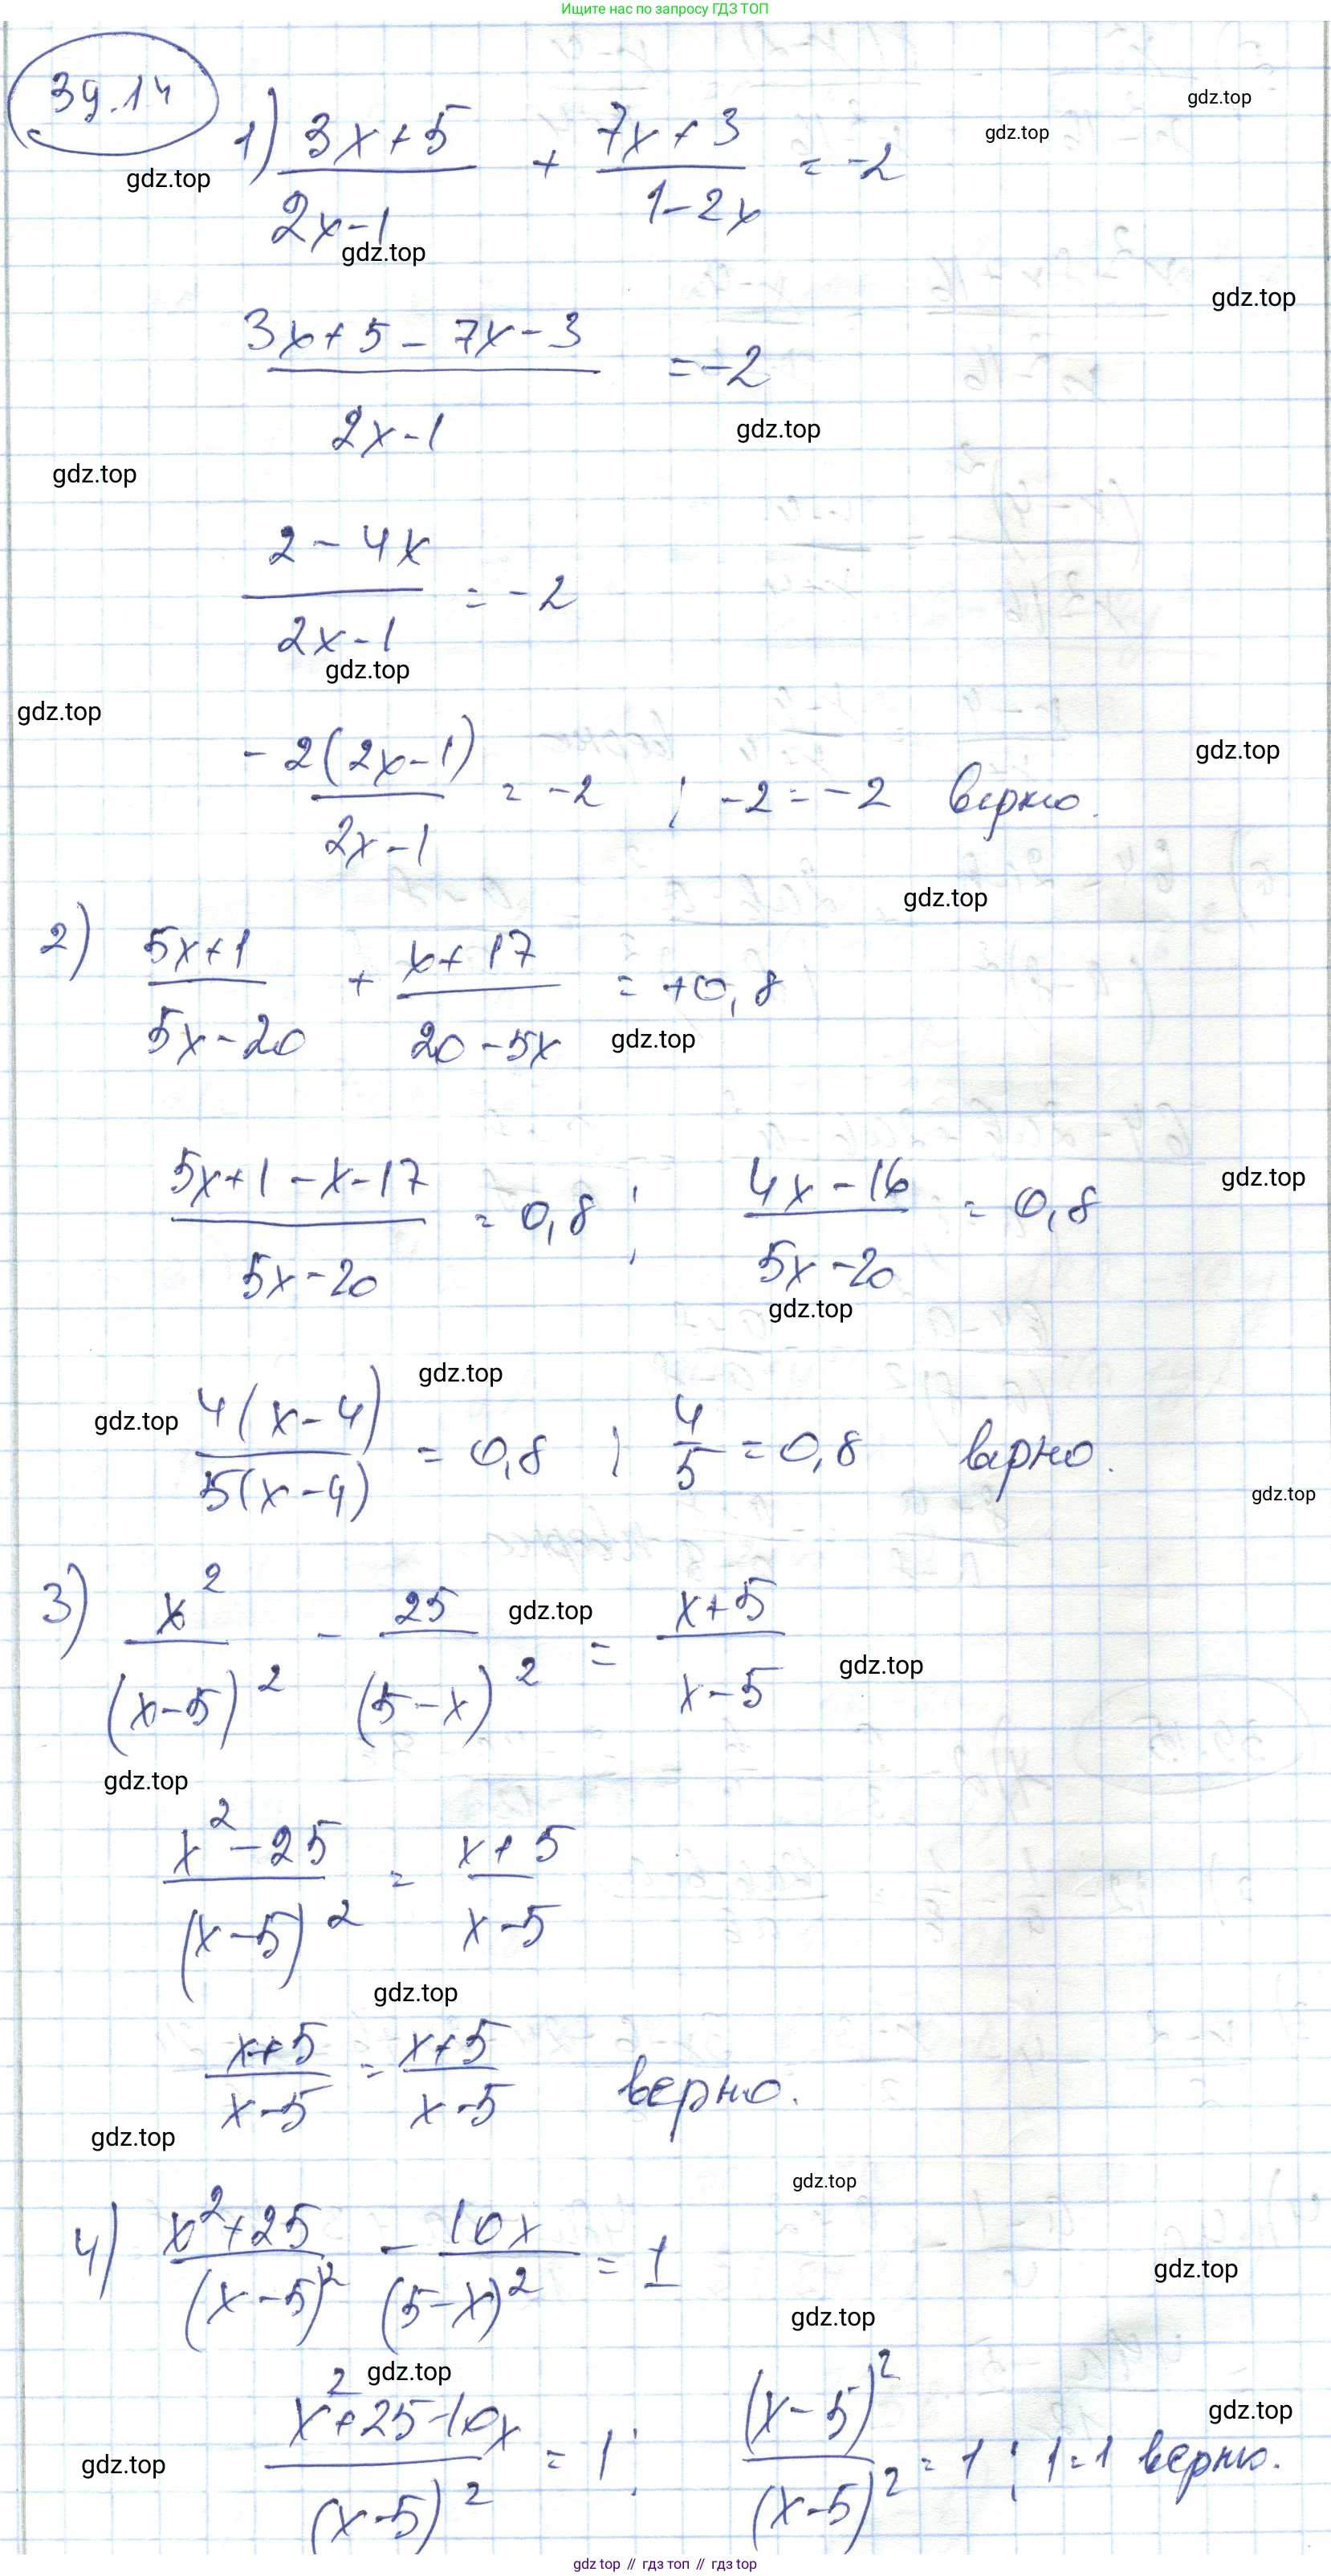 Ищите нас по запросу ГДЗ ТОП
39.14
gdz.top
gdz.top
1) (3x+5)/(2x-1) + (7x+3)/(1-2x) = -2
gdz.top
gdz.top
gdz.top
(3x+5-7x-3)/(2x-1) = -2
gdz.top
gdz.top
(2-4x)/(2x-1) = -2
gdz.top
gdz.top
gdz.top
-2(2x-1)/(2x-1) = -2 ; -2 = -2 верно.
gdz.top
2) (5x+1)/(5x-20) + (x+17)/(20-5x) = +0,8
gdz.top
gdz.top
(5x+1-x-17)/(5x-20) = 0,8 ; (4x-16)/(5x-20) = 0,8
gdz.top
gdz.top
gdz.top
4(x-4)/5(x-4) = 0,8 ; 4/5 = 0,8 верно.
gdz.top
3) x²/(x-5)² - 25/(5-x)² = (x+5)/(x-5)
gdz.top
gdz.top
gdz.top
(x²-25)/(x-5)² = (x+5)/(x-5)
gdz.top
(x+5)/(x-5) = (x+5)/(x-5) верно.
gdz.top
gdz.top
4) (x²+25)/(x-5)² - 10x/(5-x)² = 1
gdz.top
gdz.top
gdz.top
gdz.top
(x²+25-10x)/(x-5)² = 1 ; (x-5)²/(x-5)² = 1 ; 1=1 верно.
gdz.top
gdz top // гдз топ // гдз top